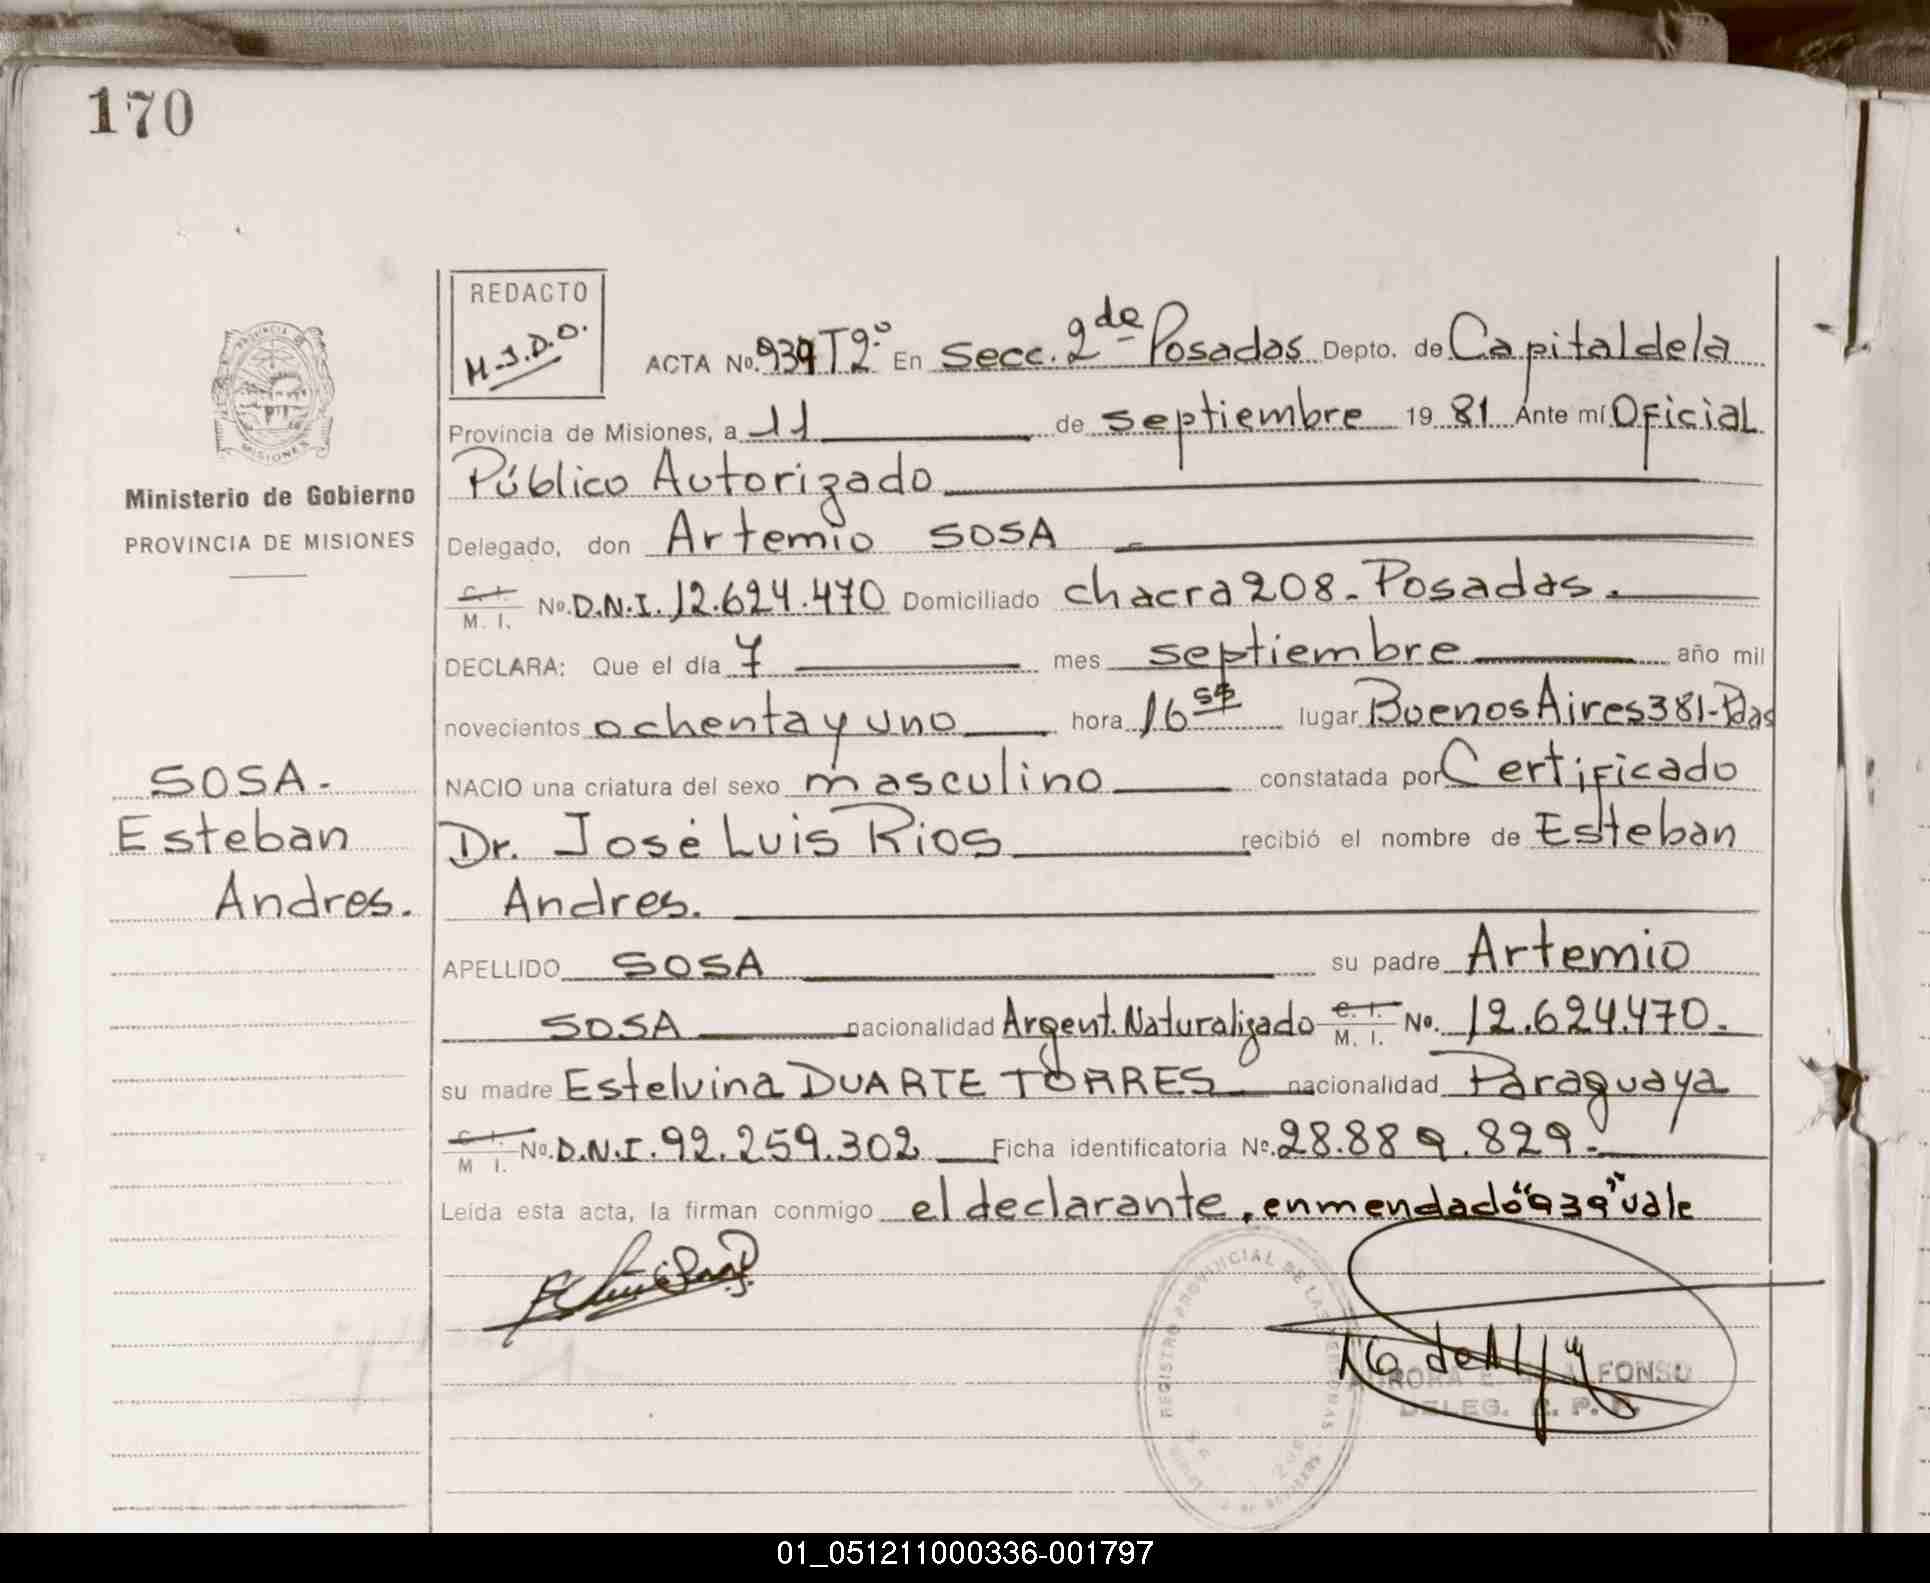 170
REDACTO
M.J.D.O.
ACTA No. 939 T2º En Secc. 2da de Posadas Depto. de Capital de la
Provincia de Misiones, a 11 de septiembre 19 81 Ante mí Oficial
Público Autorizado
Delegado, don Artemio SOSA
C. I. M. I. No. D.N.I. 12.624.470 Domiciliado chacra 208 - Posadas.
DECLARA: Que el día 7 mes septiembre año mil
novecientos ochenta y uno hora 16 lugar Buenos Aires 381 - Pdas
NACIO una criatura del sexo masculino constatada por Certificado
Dr. José Luis Rios recibió el nombre de Esteban
Andres.
APELLIDO SOSA su padre Artemio
SOSA nacionalidad Argent. Naturalizado C. I. M. I. No. 12.624.470.
su madre Estelvina DUARTE TORRES nacionalidad Paraguaya
C. I. M I. No. D.N.I. 92.259.302 Ficha identificatoria Nº. 28.889.829.-
Leída esta acta, la firman conmigo el declarante, enmendado "939" vale
PROVINCIA DE
MISIONES
Ministerio de Gobierno
PROVINCIA DE MISIONES
SOSA.
Esteban
Andres.
REGISTRO PROVINCIAL DE LAS PERSONAS
DELEG.
01_051211000336-001797